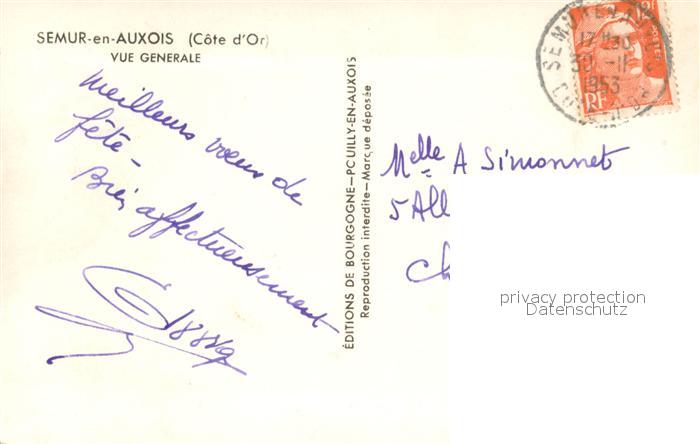 SEMUR-en-AUXOIS (Côte d'Or)
VUE GENERALE
Meilleurs voeux de
fête -
Bien affectueusement
ÉDITIONS DE BOURGOGNE—POUILLY-EN-AUXOIS
Reproduction interdite—Marque déposée
17H30
30-11
1953
12F
POSTES
RF
Melle A Simonnet
5 All
Ch
privacy protection
Datenschutz